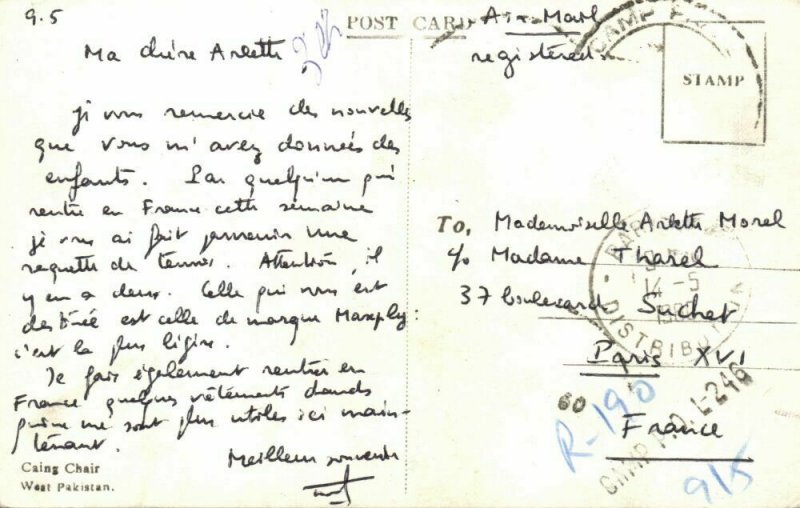 9.5
Ma chère Arlette
je vous remercie des nouvelles
que vous m'avez données des
enfants. Par quelqu'un qui
rentre en France cette semaine
je vous ai fait parvenir une
raquette de tennis. Attention, il
y en a deux. Celle qui vous est
destinée est celle de marque Maxply:
c'est la plus légère.
Je fais également rentrer en
France quelques vêtements chauds
qui ne me sont plus utiles ici main-
tenant.
Meilleur souvenir
Caing Chair
West Pakistan.
POST CARD
Air-Mail
registered
STAMP
To, Mademoiselle Arlette Morel
c/o Madame Tharel
37 boulevard Suchet
Paris XVI
France
14-5
DISTRIBUTION
60
R-190
CAMP P.O L-246
9/5